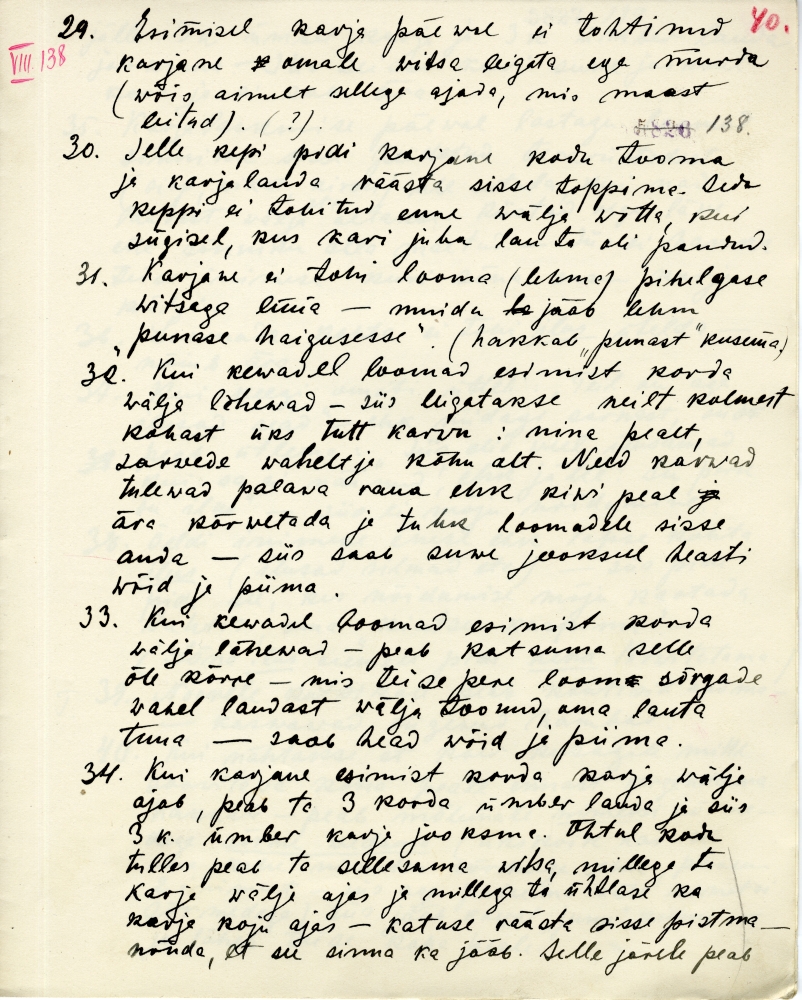 29. Esimisel karja päewal ei tohtinud 40.
VIII 138 karjane omale witsa leigata ega murda
(wõis ainult sellega ajada, mis maast
leitud). (?). 138.
30. Selle kepi pidi karjane kodu tooma
ja karjalauda räästa sisse toppima. Seda
keppi ei tohitud enne wälja wõtta, kui
sügisel, kus kari juba lauta oli pandud.
31. Karjane ei tohi looma (lehma) pihelgase
witsaga lüüa — muidu jääb lehm
"punase haigusesse". (hakkab "punast" kusema.)
32. Kui kewadel loomad esimist korda
wälja lähewad – siis leigatakse neilt kolmest
kohast üks tutt karvu : nina pealt,
sarwede waheltja kõhu alt. Need karwad
tulewad palawa raua ehk kiwi peal
ära kõrwetada ja tuhk loomadele sisse
anda — siis saab suwe jooksul heasti
wõid ja piima.
33. Kui kewadel loomad esimist korda
wälja lähewad – peab katsuma selle
õle kõrre – mis teise pere loom sõrgade
wahel laudast wälja toonud, oma lauta
tuua — saab head wõid ja piima.
34. Kui karjane esimist korda karja wälja
ajab, peab ta 3 korda ümber lauda ja siis
3 k. ümber karja jooksma. Õhtul kodu
tulles peab ta sellesama witsa, millega ta
karja wälja ajas ja millega ta ühtlase ka
karja koju ajas – katuse räästa sisse pistma —
nõnda, et see sinna ka jääb. Selle järele peab